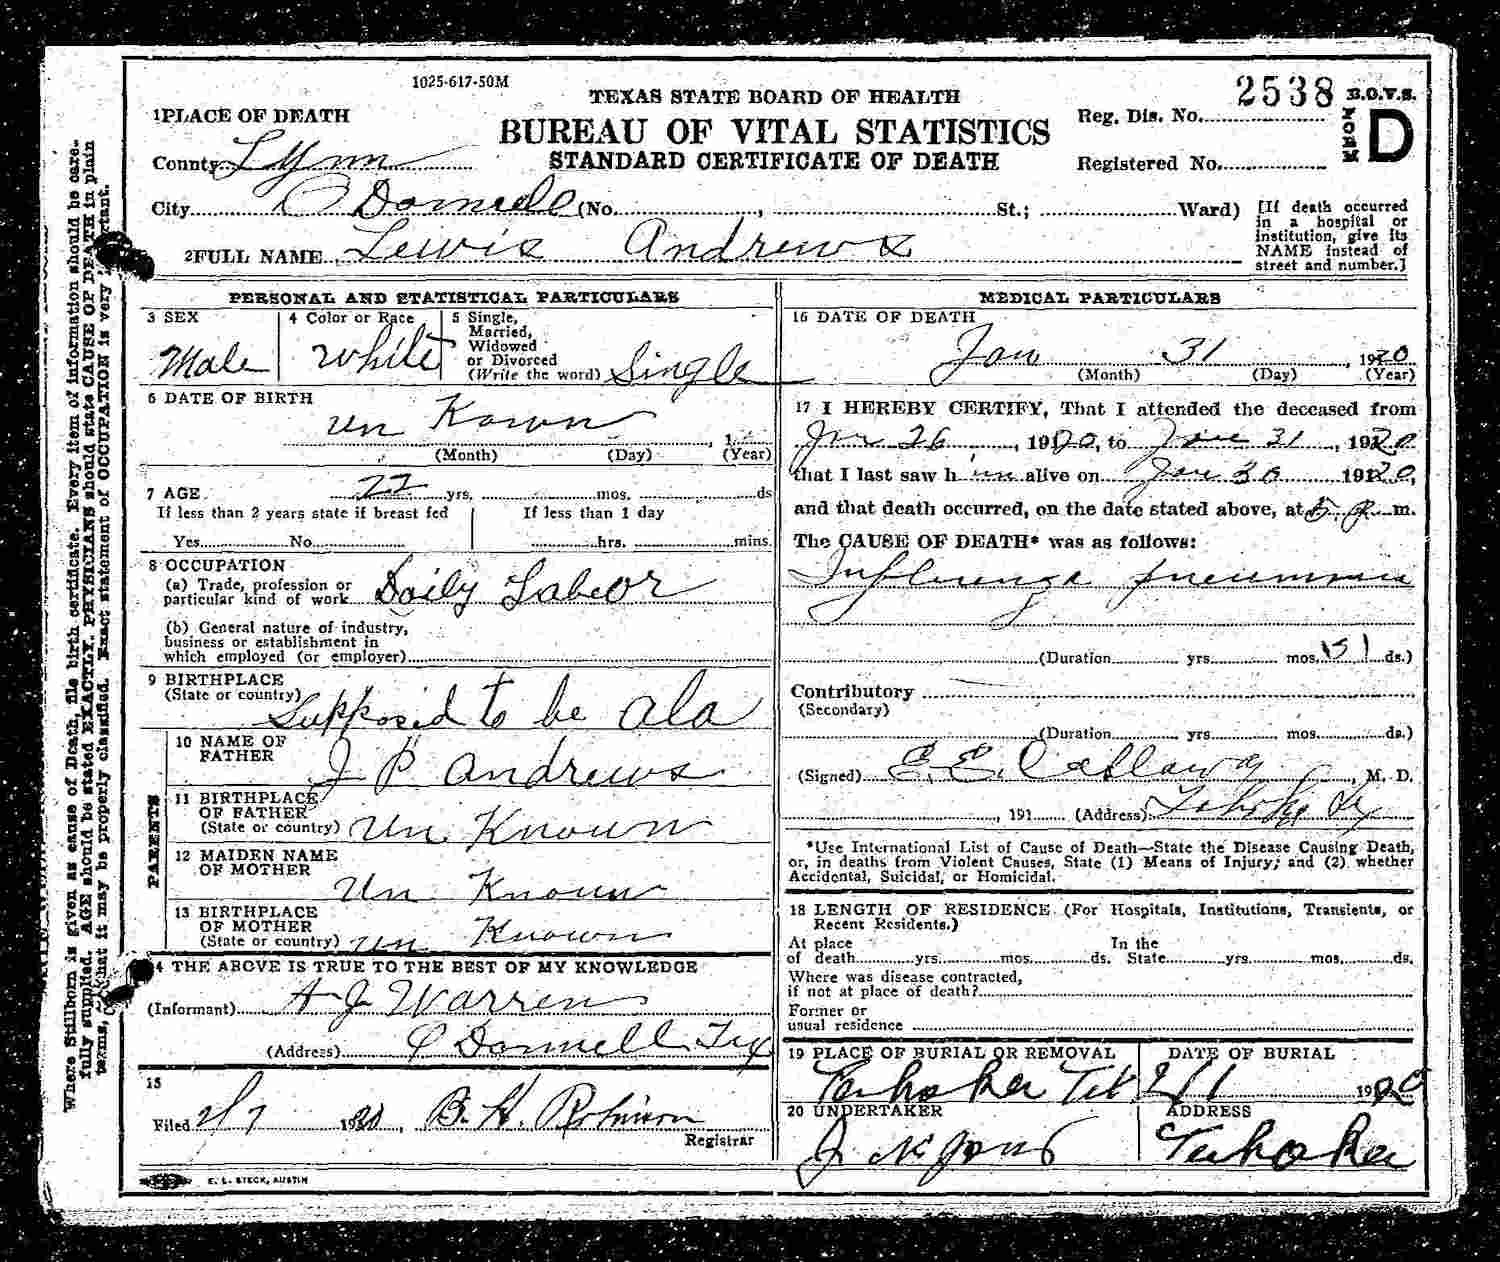 1025-617-50M
TEXAS STATE BOARD OF HEALTH
BUREAU OF VITAL STATISTICS
STANDARD CERTIFICATE OF DEATH
2538 B.O.V.S.
Reg. Dis. No.
FORM D
Registered No.
1PLACE OF DEATH
County Lynn
City O Donnell (No. , St.; Ward)
[If death occurred
in a hospital or
institution, give its
NAME instead of
street and number.]
2FULL NAME Lewis Andrews
PERSONAL AND STATISTICAL PARTICULARS
3 SEX
Male
4 Color or Race
White
5 Single,
Married,
Widowed
or Divorced
(Write the word) Single
6 DATE OF BIRTH
un Kown , 1
(Month) (Day) (Year)
7 AGE 22 yrs. mos. ds
If less than 2 years state if breast fed
Yes No
If less than 1 day
hrs. mins.
8 OCCUPATION
(a) Trade, profession or
particular kind of work Daily Labeor
(b) General nature of industry,
business or establishment in
which employed (or employer)
9 BIRTHPLACE
(State or country) Supposed to be ala
PARENTS
10 NAME OF
FATHER J P Andrews
11 BIRTHPLACE
OF FATHER
(State or country) un Known
12 MAIDEN NAME
OF MOTHER
Un Known
13 BIRTHPLACE
OF MOTHER
(State or country) un Known
THE ABOVE IS TRUE TO THE BEST OF MY KNOWLEDGE
(Informant) A J Warren
(Address) O Donnell Tex
15
Filed 2/7 1920, B. H. Robinson
Registrar
E. L. STECK, AUSTIN
MEDICAL PARTICULARS
16 DATE OF DEATH
Jan 31 , 1920
(Month) (Day) (Year)
17 I HEREBY CERTIFY, That I attended the deceased from
Jan 26 , 1920, to Jan 31 , 1920
that I last saw him alive on Jan 30 1920,
and that death occurred, on the date stated above, at 5 P m.
The CAUSE OF DEATH* was as follows:
Influenza pneumonia
(Duration yrs. mos. ds.)
Contributory
(Secondary)
(Duration yrs. mos. ds.)
(Signed) E. E. Callaway , M. D.
, 191 (Address) Tahoka Tex
*Use International List of Cause of Death—State the Disease Causing Death,
or, in deaths from Violent Causes, State (1) Means of Injury; and (2) whether
Accidental, Suicidal, or Homicidal.
18 LENGTH OF RESIDENCE (For Hospitals, Institutions, Transients, or
Recent Residents.)
At place
of death yrs. mos. ds.
In the
State yrs. mos. ds.
Where was disease contracted,
if not at place of death?
Former or
usual residence
19 PLACE OF BURIAL OR REMOVAL
Tahoka Tex
DATE OF BURIAL
2/1 1920
20 UNDERTAKER
ADDRESS
Tahoka
Where Stillborn is given as cause of Death, file birth certificate. Every item of information should be care-
fully supplied. AGE should be stated EXACTLY. PHYSICIANS should state CAUSE OF DEATH in plain
terms, that it may be properly classified. Exact statement of OCCUPATION is very